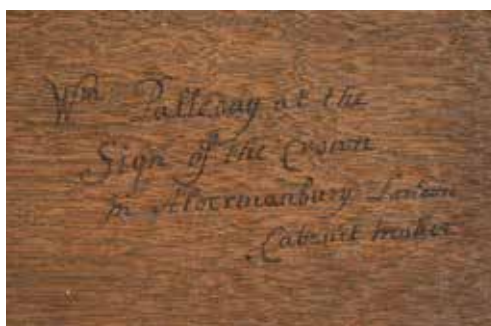 Wm Palleday at the
Sign of the Crown
in Aldermanbury London
Cabinet maker